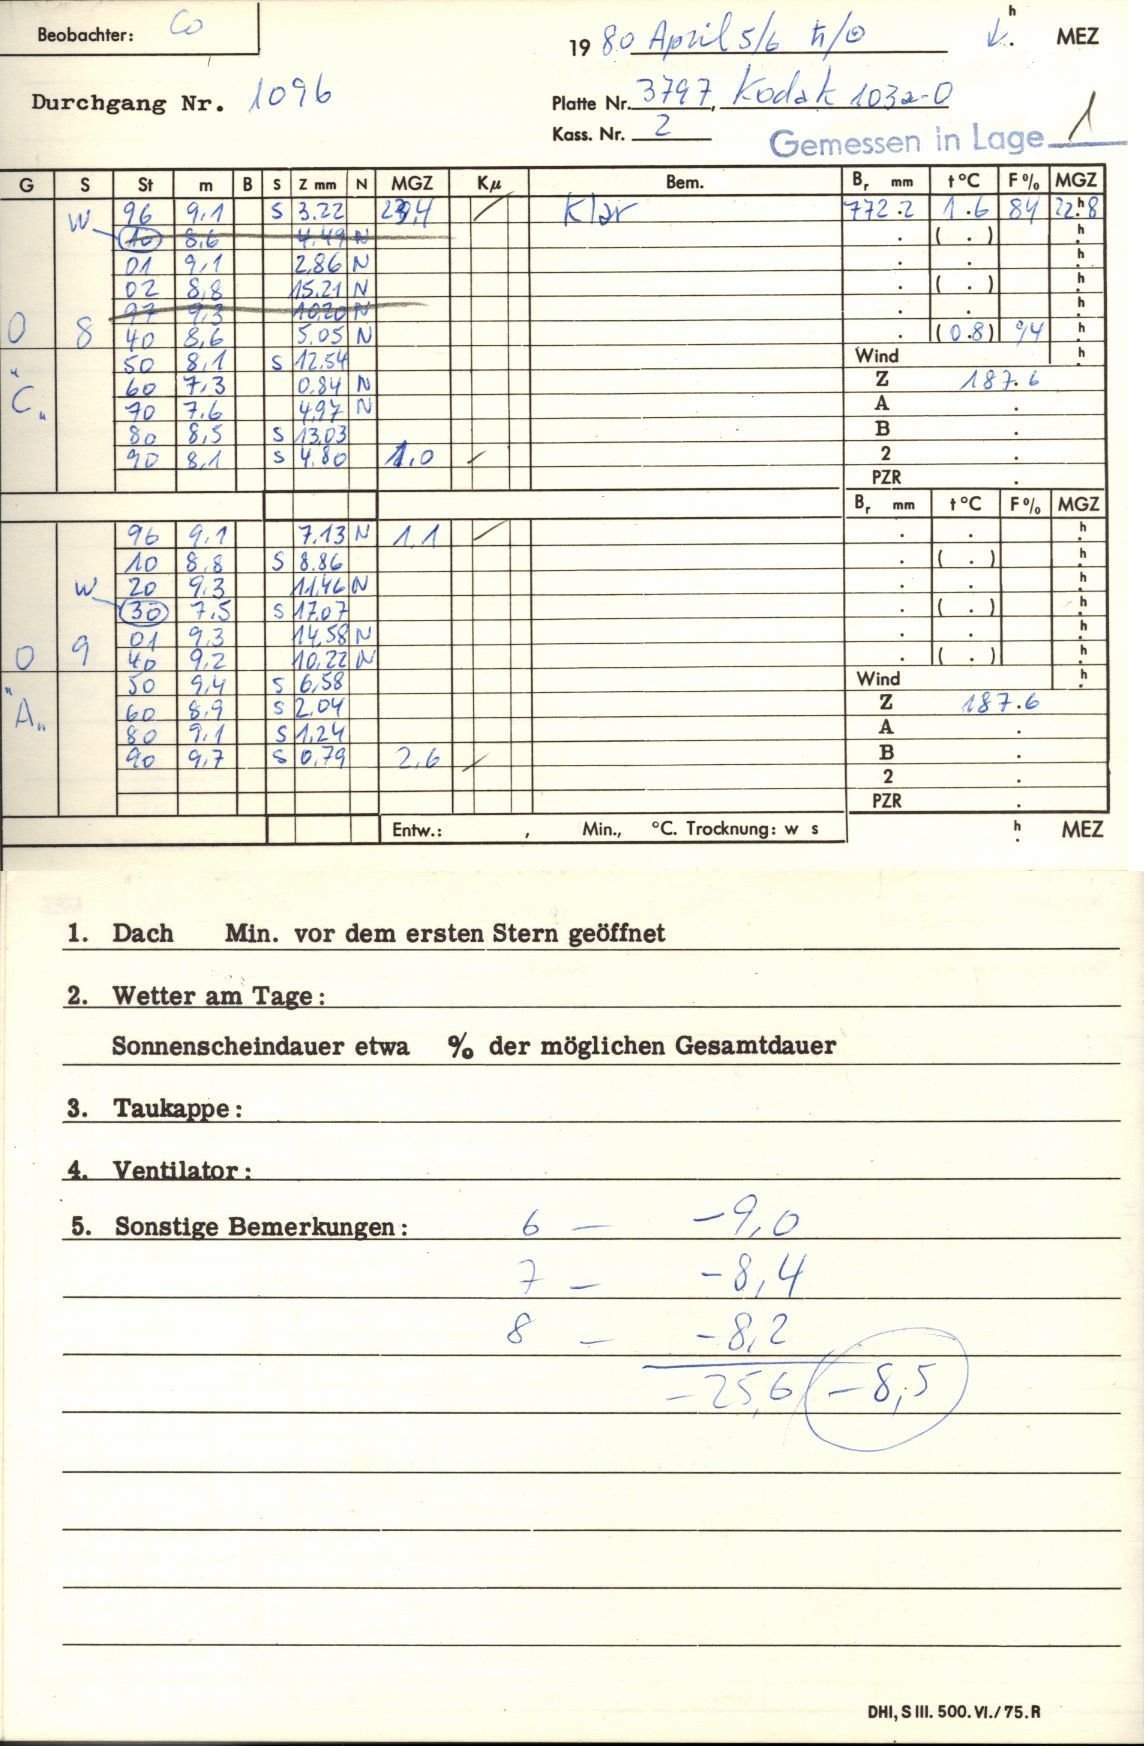 Beobachter: Co
19 80 April 5/6 ♄/☉ h MEZ
Durchgang Nr. 1096
Platte Nr. 3797, Kodak 103a-O
Kass. Nr. 2
Gemessen in Lage 1
G S St m B S Z mm N MGZ Kµ Bem. Br mm t °C F % MGZ
W 96 9,1 S 3.22 Klar 772.2 1.6 84 22.h8
10 8,6 4,49 N . ( . ) h
01 9,1 2,86 N . . h
02 8,8 15,21 N . ( . ) h
97 9,3 10,20 N . . h
O 8 40 8,6 5,05 N . (0.8) 94 h
50 8,1 S 12,54 Wind h
"C" 60 7,3 0,84 N Z 187.6
70 7,6 4,97 N A .
80 8,5 S 13,03 B .
90 8,1 S 4,80 1,0 2 .
PZR .
Br mm t °C F % MGZ
96 9,1 7,13 N 1,1 . . h
10 8,8 S 8,86 . ( . ) h
W 20 9,3 11,46 N . . h
30 7,5 S 17,07 . ( . ) h
01 9,3 14,58 N . . h
O 9 40 9,2 10,22 N . ( . ) h
50 9,4 S 6,58 Wind h
"A" 60 8,9 S 2,04 Z 187.6
80 9,1 S 1,24 A .
90 9,7 S 0,79 2,6 B .
2 .
PZR .
Entw.: , Min., °C. Trocknung: w s h MEZ
1. Dach Min. vor dem ersten Stern geöffnet
2. Wetter am Tage:
Sonnenscheindauer etwa % der möglichen Gesamtdauer
3. Taukappe:
4. Ventilator:
5. Sonstige Bemerkungen: 6 — -9,0
7 — -8,4
8 — -8,2
-25,6 -8,5
DHI, S III. 500. VI./75. R